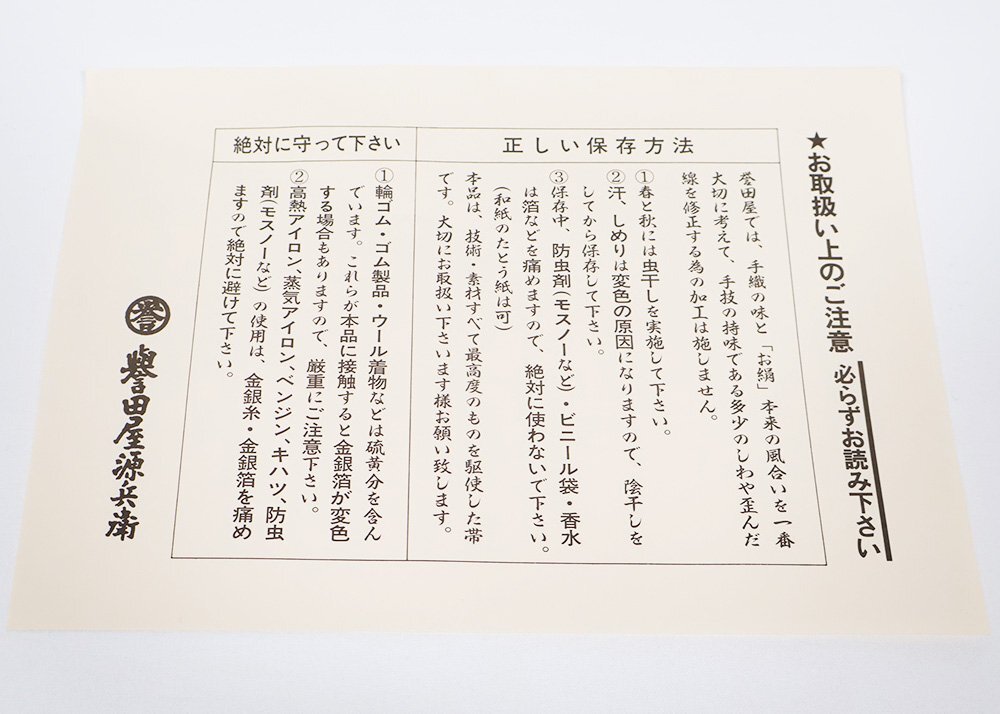 ★お取扱い上のご注意 必らずお読み下さい
正しい保存方法
誉田屋では、手織の味と「お絹」本来の風合いを一番
大切に考えて、手技の持味である多少のしわや歪んだ
線を修正する為の加工は施しません。
①春と秋には虫干しを実施して下さい。
②汗、しめりは変色の原因になりますので、陰干しを
してから保存して下さい。
③保存中、防虫剤(モスノーなど)・ビニール袋・香水
は箔などを痛めますので、絶対に使わないで下さい。
(和紙のたとう紙は可)
本品は、技術・素材すべて最高度のものを駆使した帯
です。大切にお取扱い下さいます様お願い致します。
絶対に守って下さい
①輪ゴム・ゴム製品・ウール着物などは硫黄分を含ん
でいます。これらが本品に接触すると金銀箔が変色
する場合もありますので、厳重にご注意下さい。
②高熱アイロン、蒸気アイロン、ベンジン、キハツ、防虫
剤(モスノーなど)の使用は、金銀糸・金銀箔を痛め
ますので絶対に避けて下さい。
誉 誉田屋源兵衛